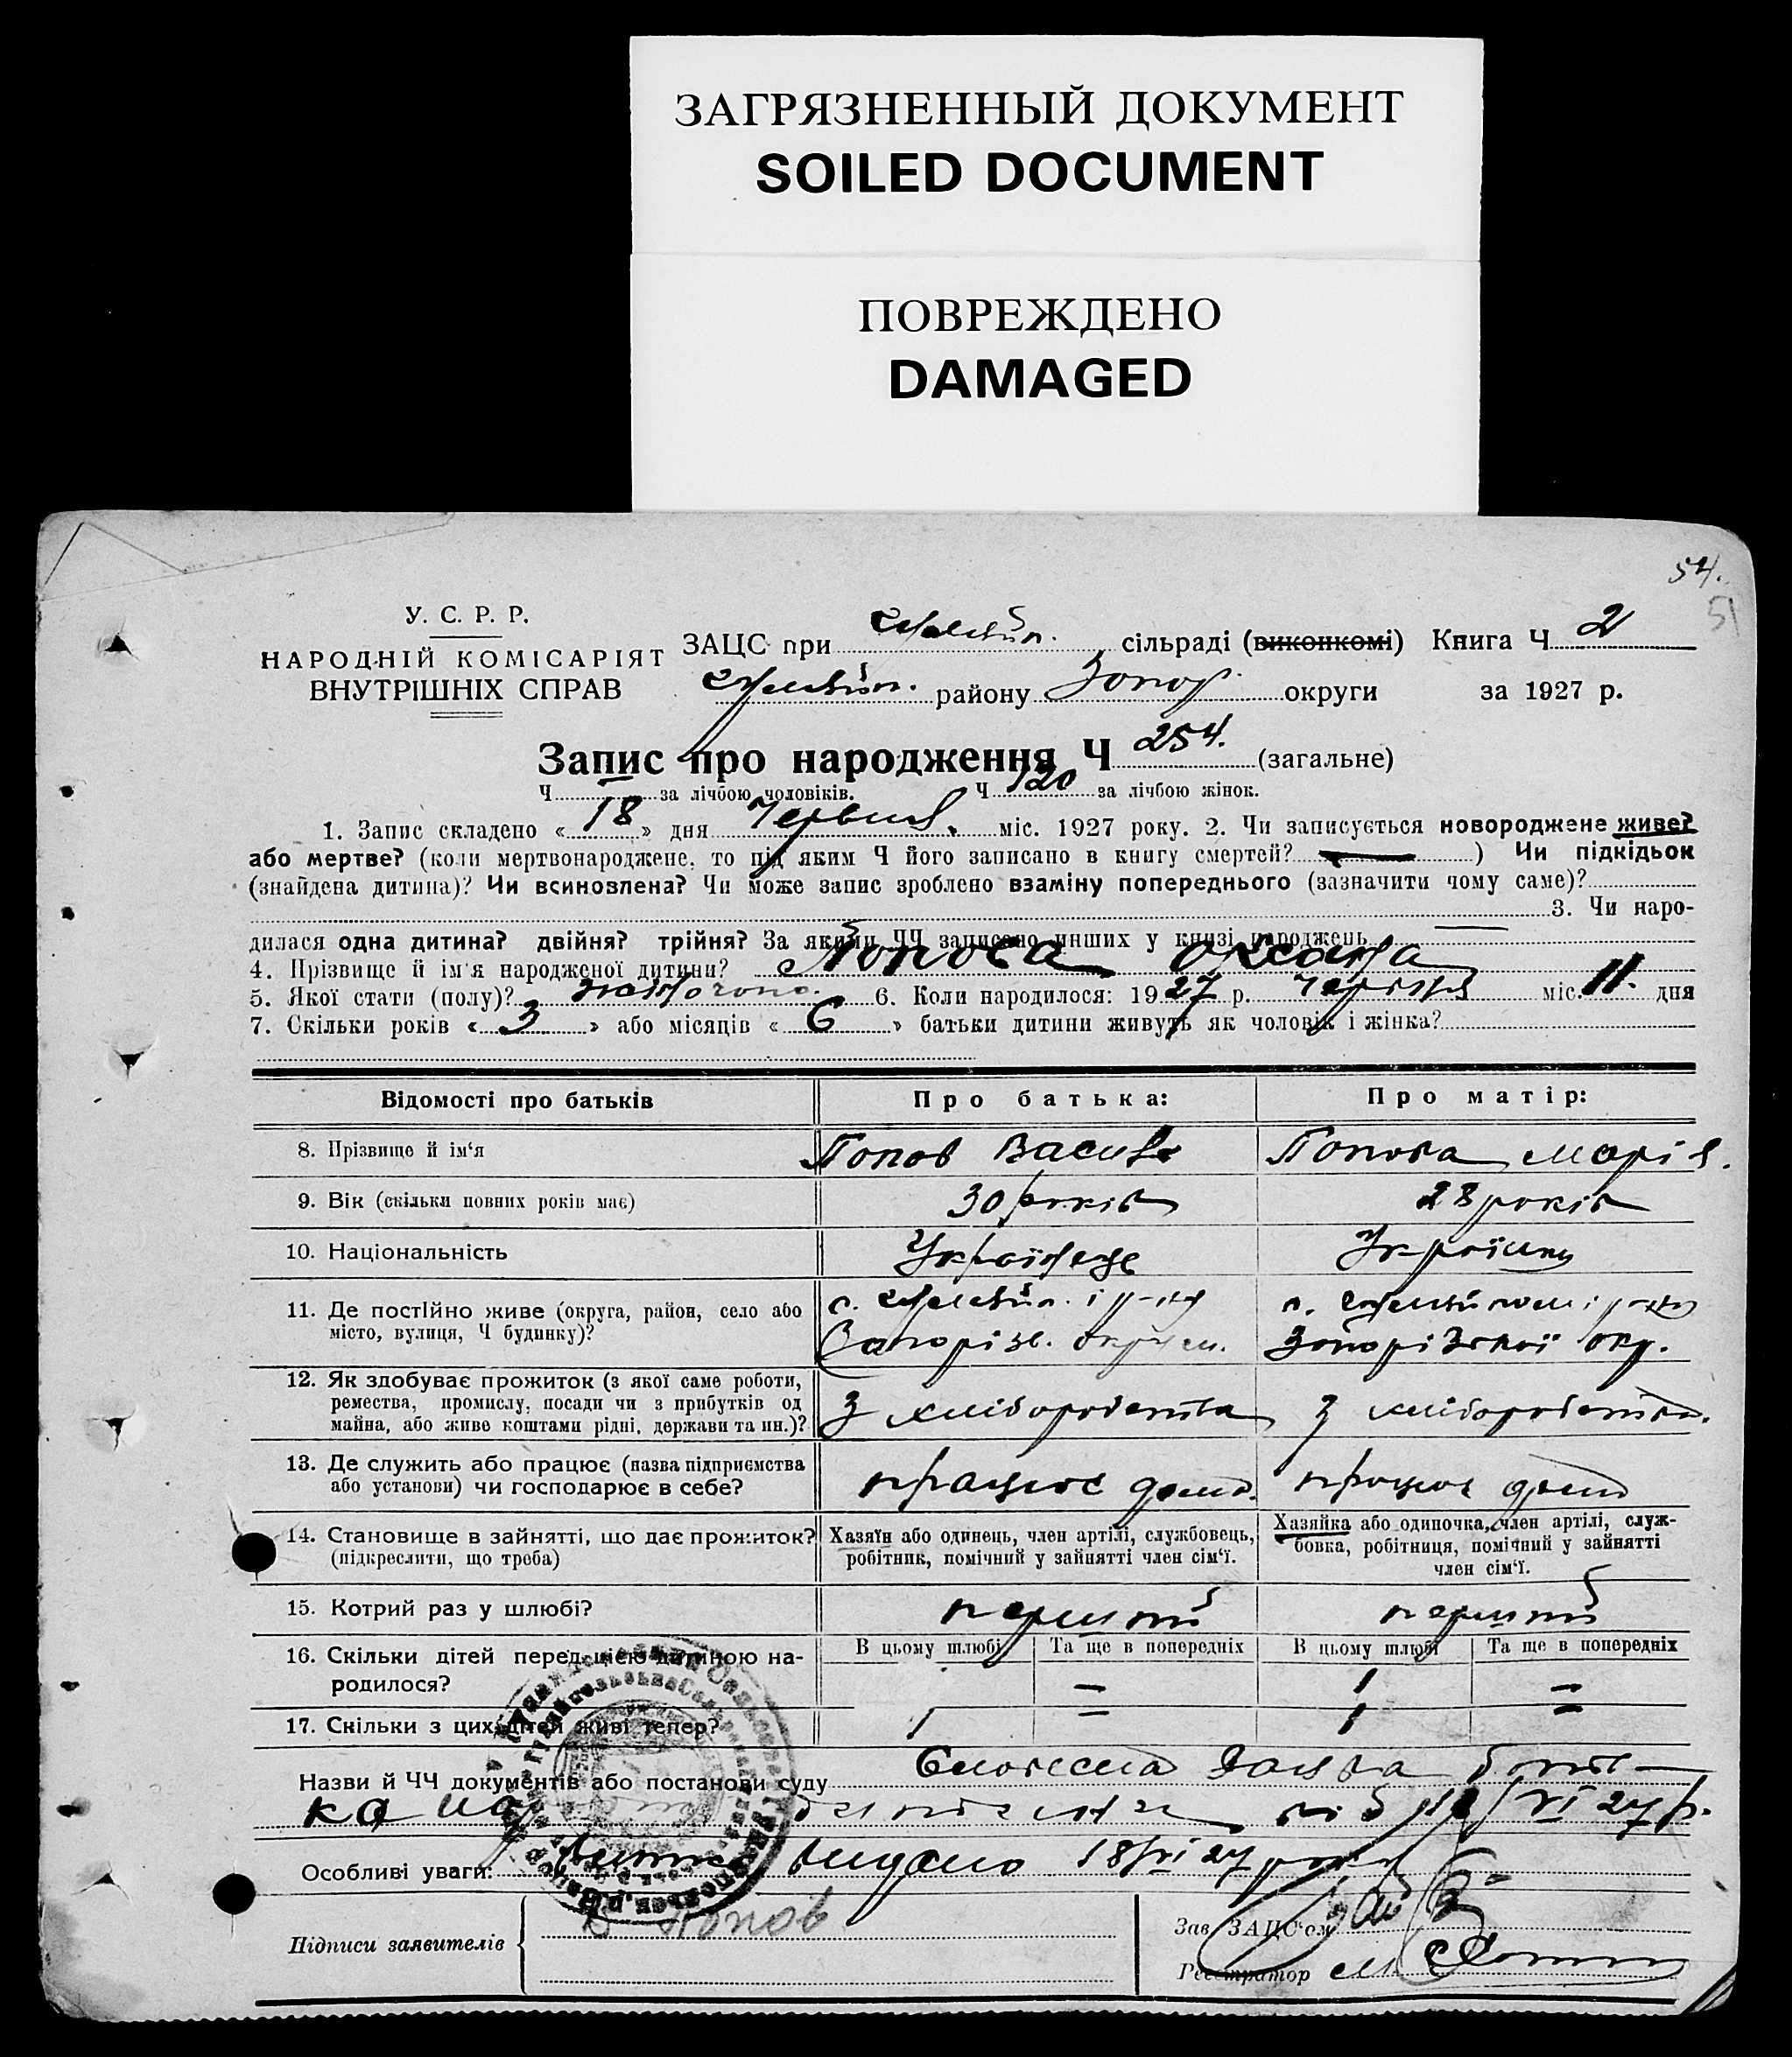 ЗАГРЯЗНЕННЫЙ ДОКУМЕНТ
SOILED DOCUMENT
ПОВРЕЖДЕНО
DAMAGED
54.
51
У. С. Р. Р.
НАРОДНІЙ КОМІСАРІЯТ
ВНУТРІШНІХ СПРАВ
ЗАЦС при сільраді (виконкомі) Книга Ч 2
району Запор. округи за 1927 р.
Запис про народження Ч 254. (загальне)
Ч за лічбою чоловіків. Ч 120 за лічбою жінок.
1. Запис складено « 18 » дня Червня міс. 1927 року. 2. Чи записується новороджене живе?
або мертве? (коли мертвонароджене, то під яким Ч його записано в книгу смертей? ) Чи підкідьок
(знайдена дитина)? Чи всиновлена? Чи може запис зроблено взаміну попереднього (зазначити чому саме)?
3. Чи наро-
дилася одна дитина? двійня? трійня? За якими ЧЧ записано инших у книзі народжень
4. Прізвище й ім'я народженої дитини? Попова Оксана
5. Якої стати (полу)? жіночого. 6. Коли народилося: 1927 р. червня міс. 11. дня
7. Скільки років « 3 » або місяців « 6 » батьки дитини живуть як чоловік і жінка?
Відомості про батьків Про батька: Про матір:
8. Прізвище й ім'я Попов Василь Попова Марія.
9. Вік (скільки повних років має) 30 років 28 років
10. Національність Українець Українка
11. Де постійно живе (округа, район, село або
місто, вулиця, Ч будинку)? Запорізь. округи. Запорізької окр.
12. Як здобуває прожиток (з якої саме роботи,
ремества, промислу, посади чи з прибутків од
майна, або живе коштами рідні, держави та ин.)? З хліборобства З хліборобства.
13. Де служить або працює (назва підприємства
або установи) чи господарює в себе? працює дома. працює дома
14. Становище в зайнятті, що дає прожиток?
(підкреслити, що треба)
Хазяїн або одинець, член артілі, службовець,
робітник, помічний у зайнятті член сім'ї.
Хазяйка або одиночка, член артілі, служ-
бовка, робітниця, помічний у зайнятті
член сім'ї.
15. Котрий раз у шлюбі? перший перший
В цьому шлюбі Та ще в попередніх В цьому шлюбі Та ще в попередніх
16. Скільки дітей перед цією дитиною на-
родилося? – 1 –
17. Скільки з цих дітей живі тепер? 1 – 1 –
Назви й ЧЧ документів або постанови суду Словесна заява бать-
ка від 18/VI 27 р.
Особливі уваги: видано 18/VI 27 року
Підписи заявителів Попов
Зав. ЗАЦС'ом
Реєстратор